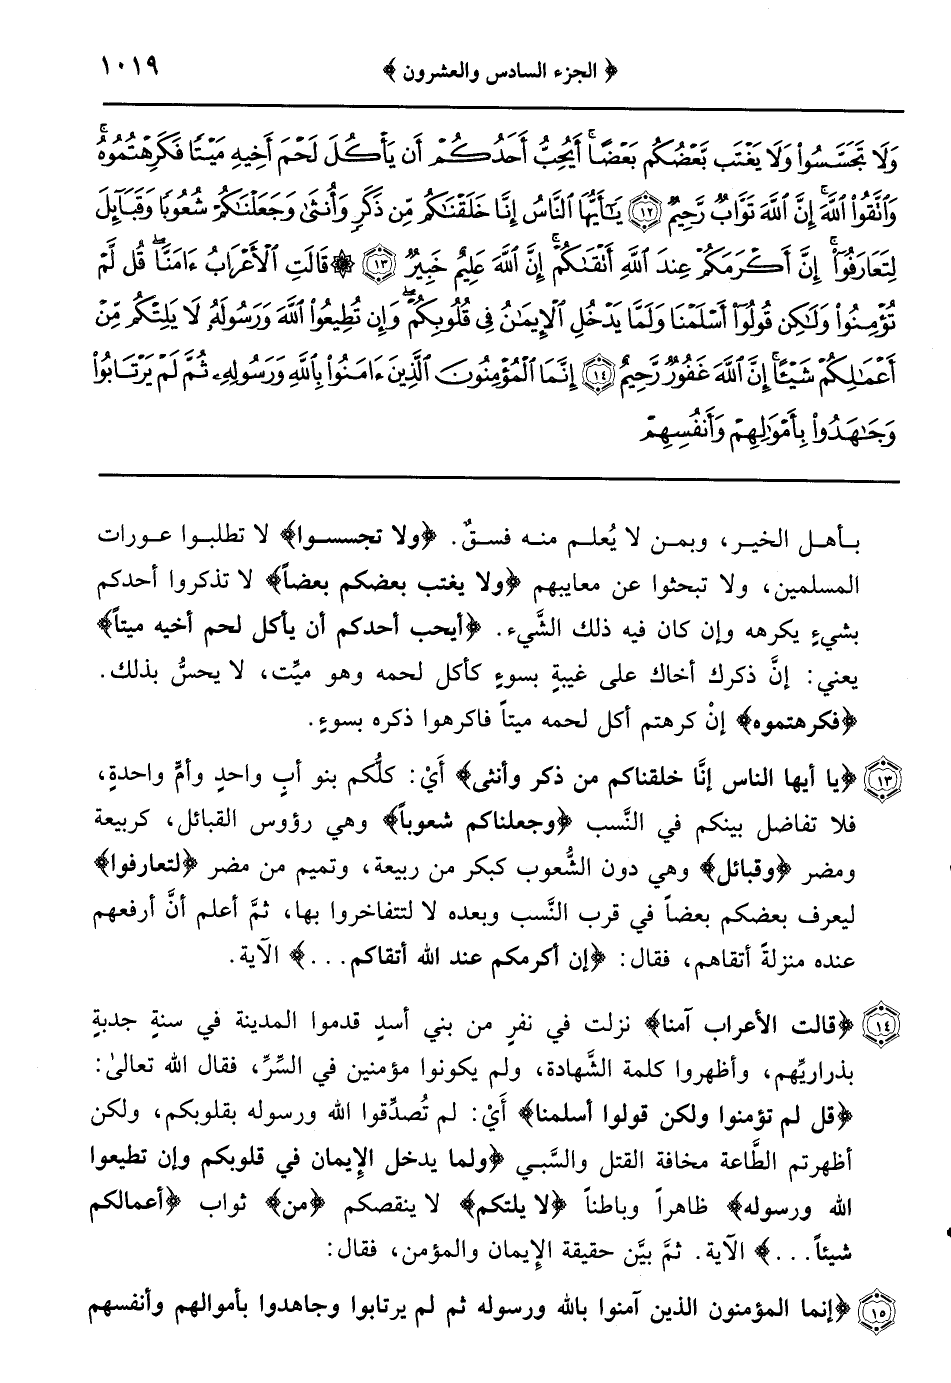 ١٠١٩ ﴿ الجزء السادس والعشرون ﴾
وَلَا تَجَسَّسُوا۟ وَلَا يَغْتَب بَّعْضُكُم بَعْضًا ۚ أَيُحِبُّ أَحَدُكُمْ أَن يَأْكُلَ لَحْمَ أَخِيهِ مَيْتًا فَكَرِهْتُمُوهُ ۚ
وَٱتَّقُوا۟ ٱللَّهَ ۚ إِنَّ ٱللَّهَ تَوَّابٌ رَّحِيمٌ ۝١٢ يَـٰٓأَيُّهَا ٱلنَّاسُ إِنَّا خَلَقْنَـٰكُم مِّن ذَكَرٍ وَأُنثَىٰ وَجَعَلْنَـٰكُمْ شُعُوبًا وَقَبَآئِلَ
لِتَعَارَفُوٓا۟ ۚ إِنَّ أَكْرَمَكُمْ عِندَ ٱللَّهِ أَتْقَىٰكُمْ ۚ إِنَّ ٱللَّهَ عَلِيمٌ خَبِيرٌ ۝١٣ ۞ قَالَتِ ٱلْأَعْرَابُ ءَامَنَّا ۖ قُل لَّمْ
تُؤْمِنُوا۟ وَلَـٰكِن قُولُوٓا۟ أَسْلَمْنَا وَلَمَّا يَدْخُلِ ٱلْإِيمَـٰنُ فِى قُلُوبِكُمْ ۖ وَإِن تُطِيعُوا۟ ٱللَّهَ وَرَسُولَهُۥ لَا يَلِتْكُم مِّنْ
أَعْمَـٰلِكُمْ شَيْـًٔا ۚ إِنَّ ٱللَّهَ غَفُورٌ رَّحِيمٌ ۝١٤ إِنَّمَا ٱلْمُؤْمِنُونَ ٱلَّذِينَ ءَامَنُوا۟ بِٱللَّهِ وَرَسُولِهِۦ ثُمَّ لَمْ يَرْتَابُوا۟
وَجَـٰهَدُوا۟ بِأَمْوَٰلِهِمْ وَأَنفُسِهِمْ
بأهل الخير، وبمن لا يُعلم منه فسقٌ. ﴿ولا تجسسوا﴾ لا تطلبوا عورات
المسلمين، ولا تبحثوا عن معايبهم ﴿ولا يغتب بعضكم بعضاً﴾ لا تذكروا أحدكم
بشيءٍ يكرهه وإن كان فيه ذلك الشَّيء. ﴿أيحب أحدكم أن يأكل لحم أخيه ميتاً﴾
يعني: إنَّ ذكرك أخاك على غيبةٍ بسوءٍ كأكل لحمه وهو ميِّت، لا يحسُّ بذلك.
﴿فكرهتموه﴾ إنْ كرهتم أكل لحمه ميتاً فاكرهوا ذكره بسوءٍ.
١٣ ﴿يا أيها الناس إنَّا خلقناكم من ذكر وأنثى﴾ أَيْ: كلُّكم بنو أبٍ واحدٍ وأمٍّ واحدةٍ،
فلا تفاضل بينكم في النَّسب ﴿وجعلناكم شعوباً﴾ وهي رؤوس القبائل، كربيعة
ومضر ﴿وقبائل﴾ وهي دون الشُّعوب كبكر من ربيعة، وتميم من مضر ﴿لتعارفوا﴾
ليعرف بعضكم بعضاً في قرب النَّسب وبعده لا لتتفاخروا بها، ثمَّ أعلم أنَّ أرفعهم
عنده منزلةً أتقاهم، فقال: ﴿إن أكرمكم عند الله أتقاكم...﴾ الآية.
١٤ ﴿قالت الأعراب آمنا﴾ نزلت في نفرٍ من بني أسدٍ قدموا المدينة في سنةٍ جدبةٍ
بذراريِّهم، وأظهروا كلمة الشَّهادة، ولم يكونوا مؤمنين في السِّرِّ، فقال الله تعالىٰ:
﴿قل لم تؤمنوا ولكن قولوا أسلمنا﴾ أَيْ: لم تُصدِّقوا الله ورسوله بقلوبكم، ولكن
أظهرتم الطَّاعة مخافة القتل والسَّبي ﴿ولما يدخل الإيمان في قلوبكم وإن تطيعوا
الله ورسوله﴾ ظاهراً وباطناً ﴿لا يلتكم﴾ لا ينقصكم ﴿من﴾ ثواب ﴿أعمالكم
شيئاً...﴾ الآية. ثمَّ بيَّن حقيقة الإيمان والمؤمن، فقال:
١٥ ﴿إنما المؤمنون الذين آمنوا بالله ورسوله ثم لم يرتابوا وجاهدوا بأموالهم وأنفسهم